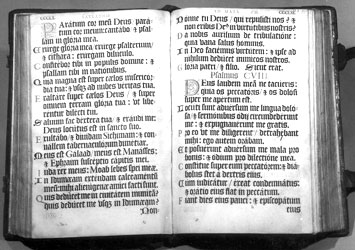 CCCLX
PAratum cor meũ Deus para-
tum cor meum: cantabo & psal-
lam in gloria mea.
Exurge gloria mea exurge psalterium,
& cithara: exurgam diluculo.
Confitebor tibi in populis domine: &
psallam tibi in nationibus.
Quia magna est super caelos misericor-
dia tua: & usq; ad nubes veritas tua.
Exaltare super caelos Deus / & super
omnem terram gloria tua: ut libe-
rentur dilecti tui.
Salvum fac dextera tua / & exaudi me:
Deus locutus est in sancto suo.
Exultabo / & dividam Sichimam: & con-
vallem tabernaculorum dimetiar.
Meus est Galaad, meus est Manasses:
& Ephraim susceptio capitis mei.
Iuda rex meus: Moab lebes spei meae.
In Idumaeam extendam calceamentũ
meũ: mihi alienigenae amici facti sunt.
Quis deducet me in civitatem munitã?
quis deducet me usq; in Idumaeam?
Non
Nonne tu Deus / qui repulisti nos? &
non exibis Deus in virtutibus nostris?
Da nobis auxilium de tribulatione:
quia vana salus hominis.
In Deo faciemus virtutem: & ipse ad
nihilum deducet inimicos nostros.
Gloria patri / & filio. Sicut erat.
Psalmus CVIII.
DEus laudem meã ne tacueris:
quia os peccatoris / & os dolosi
super me apertum est.
Locuti sunt adversum me lingua dolo-
sa: & sermonibus odii circumdederunt
me: & expugnaverunt me gratis.
Pro eo ut me diligerent / detrahebant
mihi: ego autem orabam.
Et posuerunt adversum me mala pro
bonis: & odium pro dilectione mea.
Constitue super eum peccatorem: & dia-
bolus stet a dextris eius.
Cum iudicatur / exeat condemnatus:
& oratio eius fiat in peccatum.
Fiant dies eius pauci: & episcopatum
eius